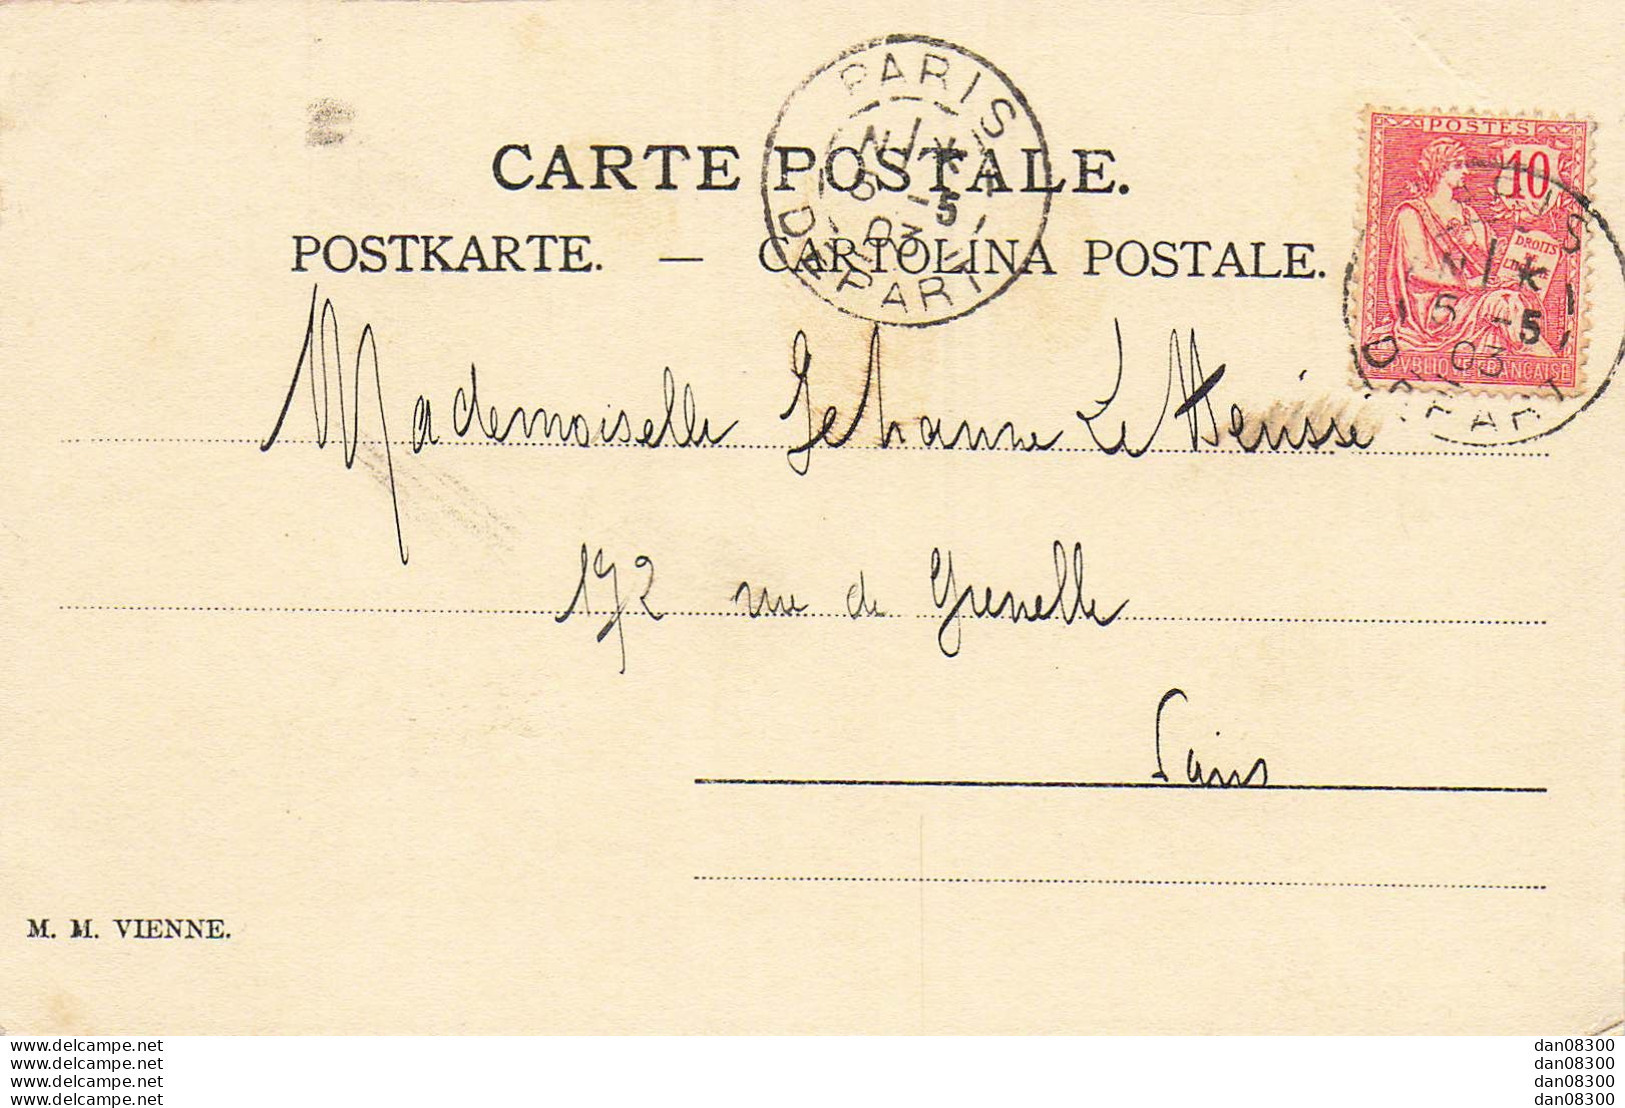 PARIS
N 1 K
5 -5
03
DEPART
POSTES
10
DROITS
RÉPVBLIQVE FRANÇAISE
PARIS
N 1 K
5 -5
03
DEPART
CARTE POSTALE.
POSTKARTE. — CARTOLINA POSTALE.
Mademoiselle Jehanne Le Hérissé
172 rue de Grenelle
Paris
M. M. VIENNE.
www.delcampe.net dan08300
www.delcampe.net dan08300
www.delcampe.net dan08300
www.delcampe.net dan08300